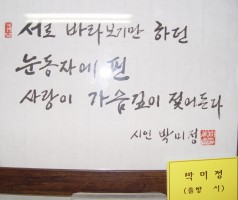 서로 바라보기만 하던
눈동자에 핀
사랑이 가슴깊이 젖어든다
시인 박미정
박 미 정
(출향 시)